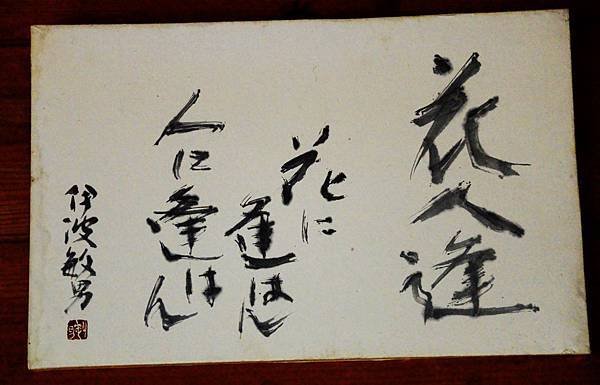 花人逢
花に
逢はん
人に
逢はん
伊波敏男